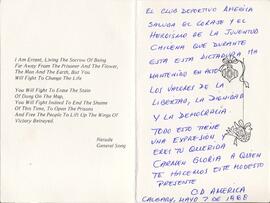 I Am Errant, Living The Sorrow Of Being
Far Away From The Prisoner And The Flower,
The Man And The Earth, But You
Will Fight To Change The Life
You Will Fight To Erase The Stain
Of Dung On The Map,
You Will Fight Instead To End The Shame
Of This Time, To Open The Prisons
And Free The People To Lift Up The Wings Of
Victory Betrayed.
Neruda
General Song
EL CLUB DEPORTIVO AMERICA
SALUDA EL CORAJE Y EL
HEROISMO DE LA JUVENTUD
CHILENA QUE DURANTE
ESTA DICTADURA HA
MANTENIDO EN ALTO
LOS VALORES DE LA
LIBERTAD, LA DIGNIDAD
Y LA DEMOCRACIA.
TODO ESTO TIENE
UNA EXPRESION Y
ERES TU QUERIDA
CARMEN GLORIA A QUIEN
TE HACEMOS ESTE MODESTO
PRESENTE
C.D. AMERICA
CALGARY, MAYO 7 DE 1988